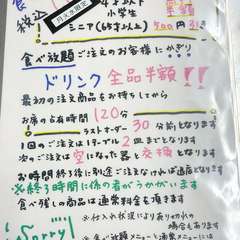 税込
月火水限定
小学生
半額
シニア(65才以上)
500円引き
食べ放題ご注文のお客様にかぎり
ドリンク全品半額!!
最初の注文商品をお持ちしてから
お席の占有時間120分
ラストオーダー30分前となります
1回のご注文は1テーブル2皿までとなります
次のご注文は空になった器と交換となります
お時間終了後に別途ご注文なければ退店となります
※終了時間に係の者がうかがいます
食べ残しの商品は通常料金を頂きます
Sorry
※仕入れ状況により売り切れの
場合もあります
※食べ放題メニューと通常メニューには